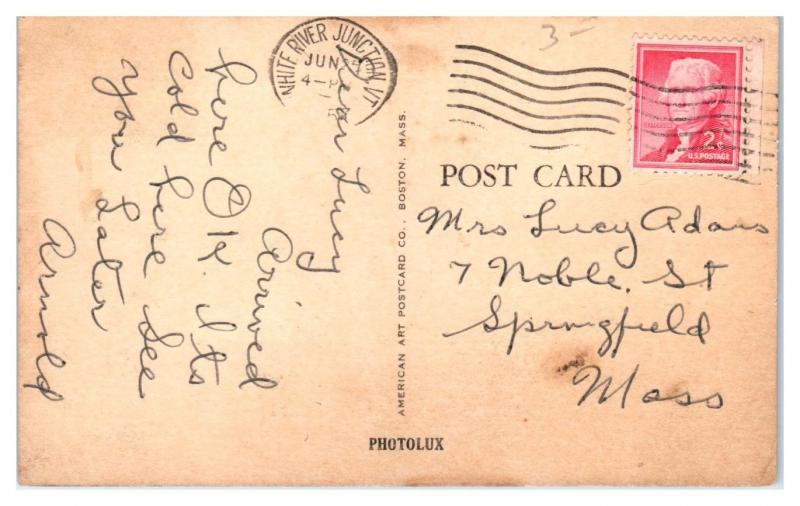 Dear Lucy
Arrived
here OK. Its
Cold here See
You Later
Arnold
WHITE RIVER JUNCTION, VT
JUN
4-P
3-
2¢
U.S. POSTAGE
POST CARD
Mrs Lucy Adams
7 Noble. St
Springfield
Mass
AMERICAN ART POSTCARD CO., BOSTON, MASS.
PHOTOLUX